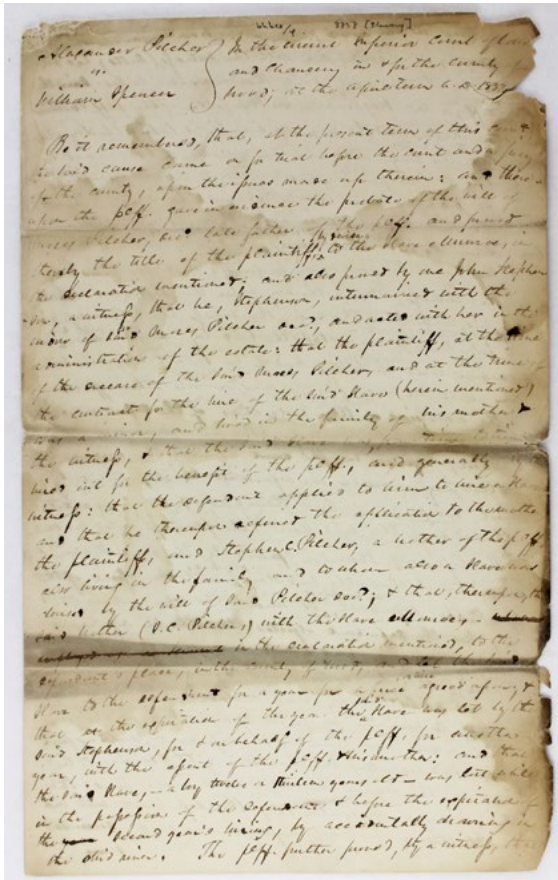 1837 [Chancery]
Alexander Pilcher } In the circuit Superior court of law
vs. and Chancery in & for the county
William Spencer Wood; at the April term A.D. 1837
Be it remembered, that, at the present term of this court
said cause came on for trial before the court and a jury
of the county, upon the issues made up therein: and there-
upon the plff. gave in evidence the probate of the will of
Moses Pilcher, decd. late father of the plff. and proved
thereby the title of the plaintiff to the slave in
the declaration mentioned; and also proved by one John Stephen-
son, a witness, that he, Stephenson, intermarried with the
widow of said Moses Pilcher decd, and acted with her in the
administration of the estate: that the plaintiff, at the time
of the decease of the said Moses Pilcher, and at the time of
the contract for the hire of the said slave (herein mentioned)
was a minor, and lived in the family of his mother &
the witness, & that the said
hired out for the benefit of the plff., and generally by
witness: that the defendant applied to him to hire a slave
and that he thereupon referred the application to the mother
the plaintiff, and Stephen C. Pilcher, a brother of the plff
also living in the family and to whom also a slave was
devised by the will of said Pilcher decd; & that, thereupon, the
said brother (S.C. Pilcher,) with the slave
in the declaration mentioned, to the
defendant's place, in the county of Wood, and let the said
slave to the defendant for a year for a price agreed upon; &
that at the expiration of the year the slave was let by the
said Stephenson, for & on behalf of the plff. for another
year, with the assent of the plff. & his mother: and that
the said slave, – a boy twelve or thirteen years old – was lost while
in the possession of the defendant & before the expiration of
the second year's hiring, by accidentally drowning in
the Ohio river. The plff. further proved, by a witness, that